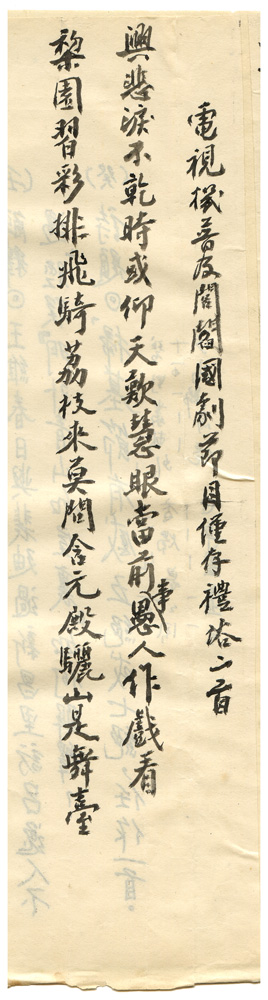 電視機普及閭閻國劇節目僅存禮塔二首
興悲淚不乾時或仰天歎慧眼當前事愚人作戲看
棃園習彩排飛騎荔枝來莫問含元殿驪山是舞臺